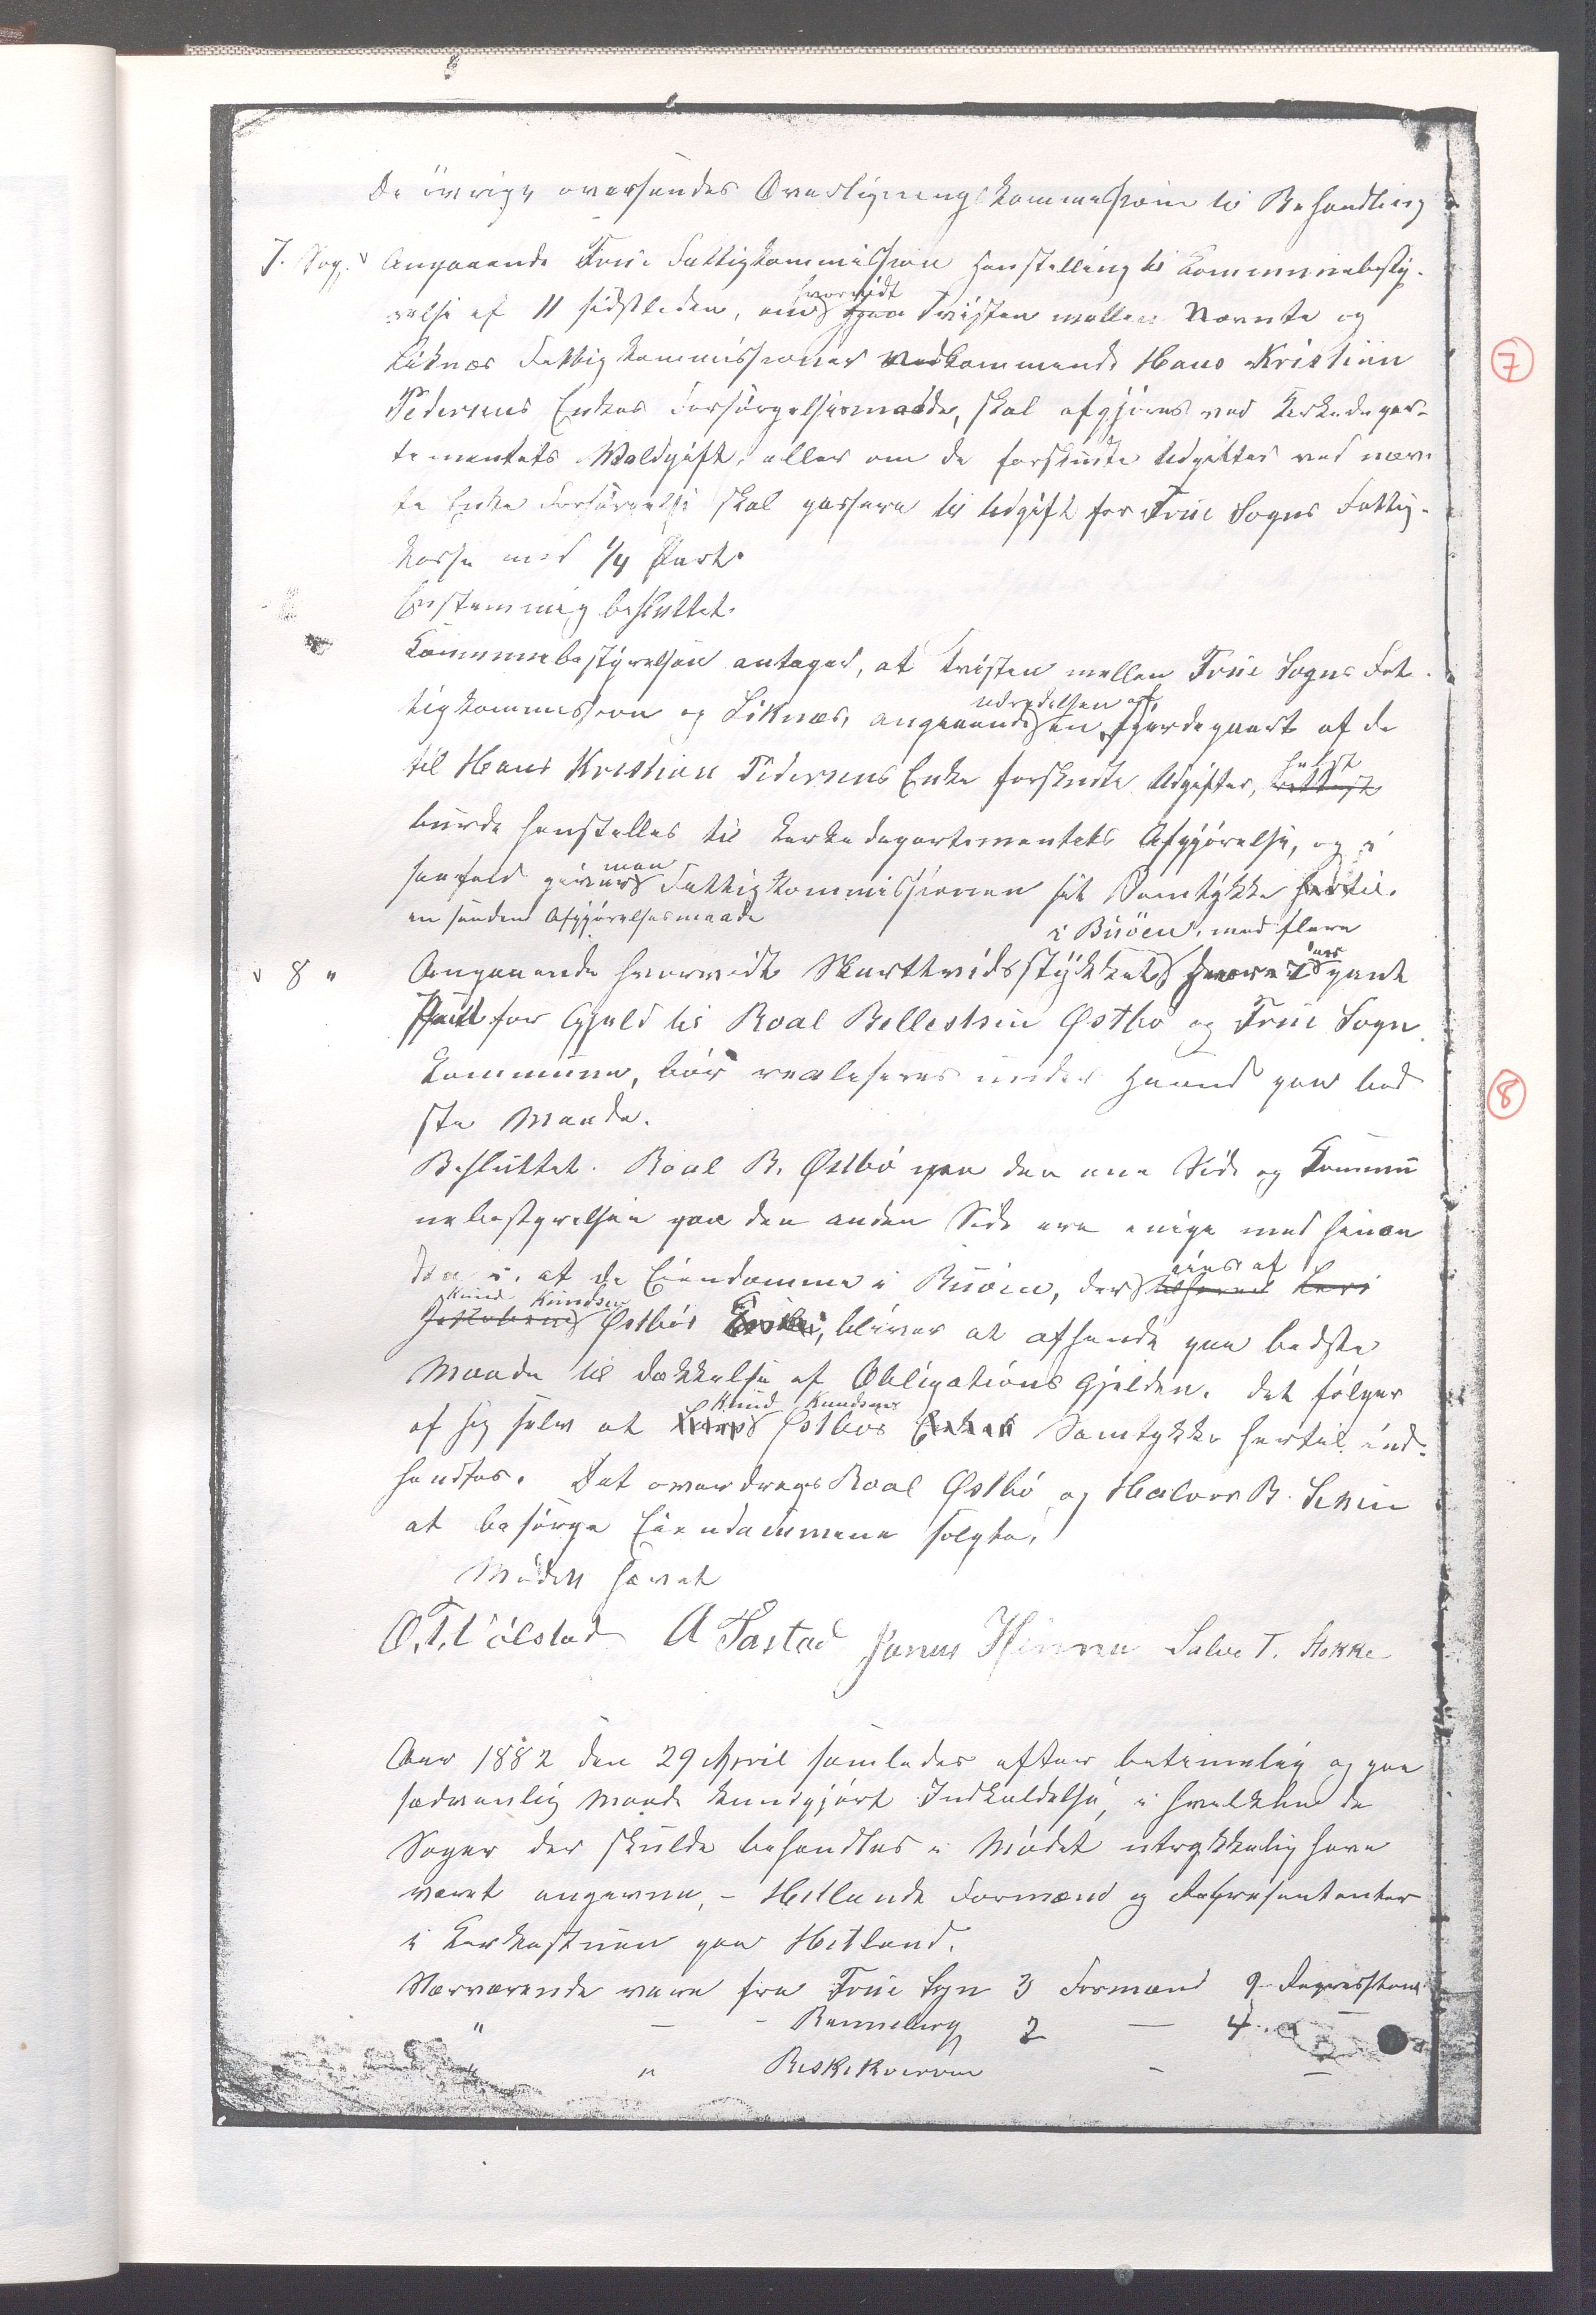 De övrige oversendes Overligningskommissionen til Behandling
7. Sag. Angaaende Frue Fattigkommission Henstilling til Kommunebesty-
relse af 11 sidstleden, om hvorvidt Tvisten mellem Nævnte og
Liknæs Fattigkommissioner vedkommende Hans Kristian
Pedersens Enkes Forsörgelsesmaade, skal afgjöres ved Kirkedepar-
tementets Voldgift, eller om de forskudte Udgifter ved nævn
te Enke Forsörgelse skal passere til Udgift for Frue Sogns Fattig-
kasse med 1/4 Part.
Enstemmig besluttet.
Kommunebestyrelsen antager, at Tvisten mellem Frue Sogns Fat-
tigkommission og Liknæs, angaaende udredelsen af en fjerdepart af de
til Hans Kristian Pedersens Enke forskudte Udgifter, helst
burde henstilles til Kirkedepartementets Afgjörelse, og i
saafald giver man Fattigkommissionen sit Samtykke til
en saadan Afgjörelsesmaade
8 " Angaaende hvorvidt Skarthvidsstykket i Buöen, med flere pant
for Gjeld til Roal Bellestsen Østbø og Frue Sogn
Kommune, bör realiseres under Haand paa bed
ste Maade.
Besluttet. Roal B. Østbø paa den ene Side og Kommu
nebestyrelsen paa den anden Side ere enige med hinan
den i, at de Eiendomme i Buöen, der eies af
Knud Knudsen Østbös, bliver at afhende paa bedste
Maade til Dækkelse af Obligationsgjelden. Det fölger
af sig selv at Knud Knudsens Østbös Samtykke hertil ind-
hentes. Det overdrages Roal Østbö og Halvor B.
at besörge Eiendommene solgte.
Mödet hævet
A Tastad Jonas Hinna Salve T. Stokke
Aar 1882 den 29 April samledes efter betimelig og paa
sedvanlig Maade kundgjört Indkaldelse, i hvilken de
Sager der skulde behandles i Mödet udtrykkelig have
været angivne, - Hetlands Formænd og Repræsentanter
i Kirkestuen paa Hetland.
Nærværende vare fra Frue Sogn 3 Formænd 9 Repræsentant
" — - Rennebergs 2 — 4
" " Riskekværven — —
7
8